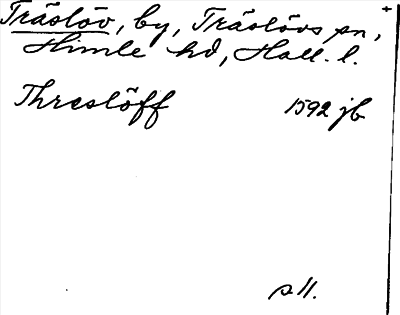 Träslöv, by, Träslövs sn,
Himle hd, Hall. l.
Threslöff 1592 jb
s 11.